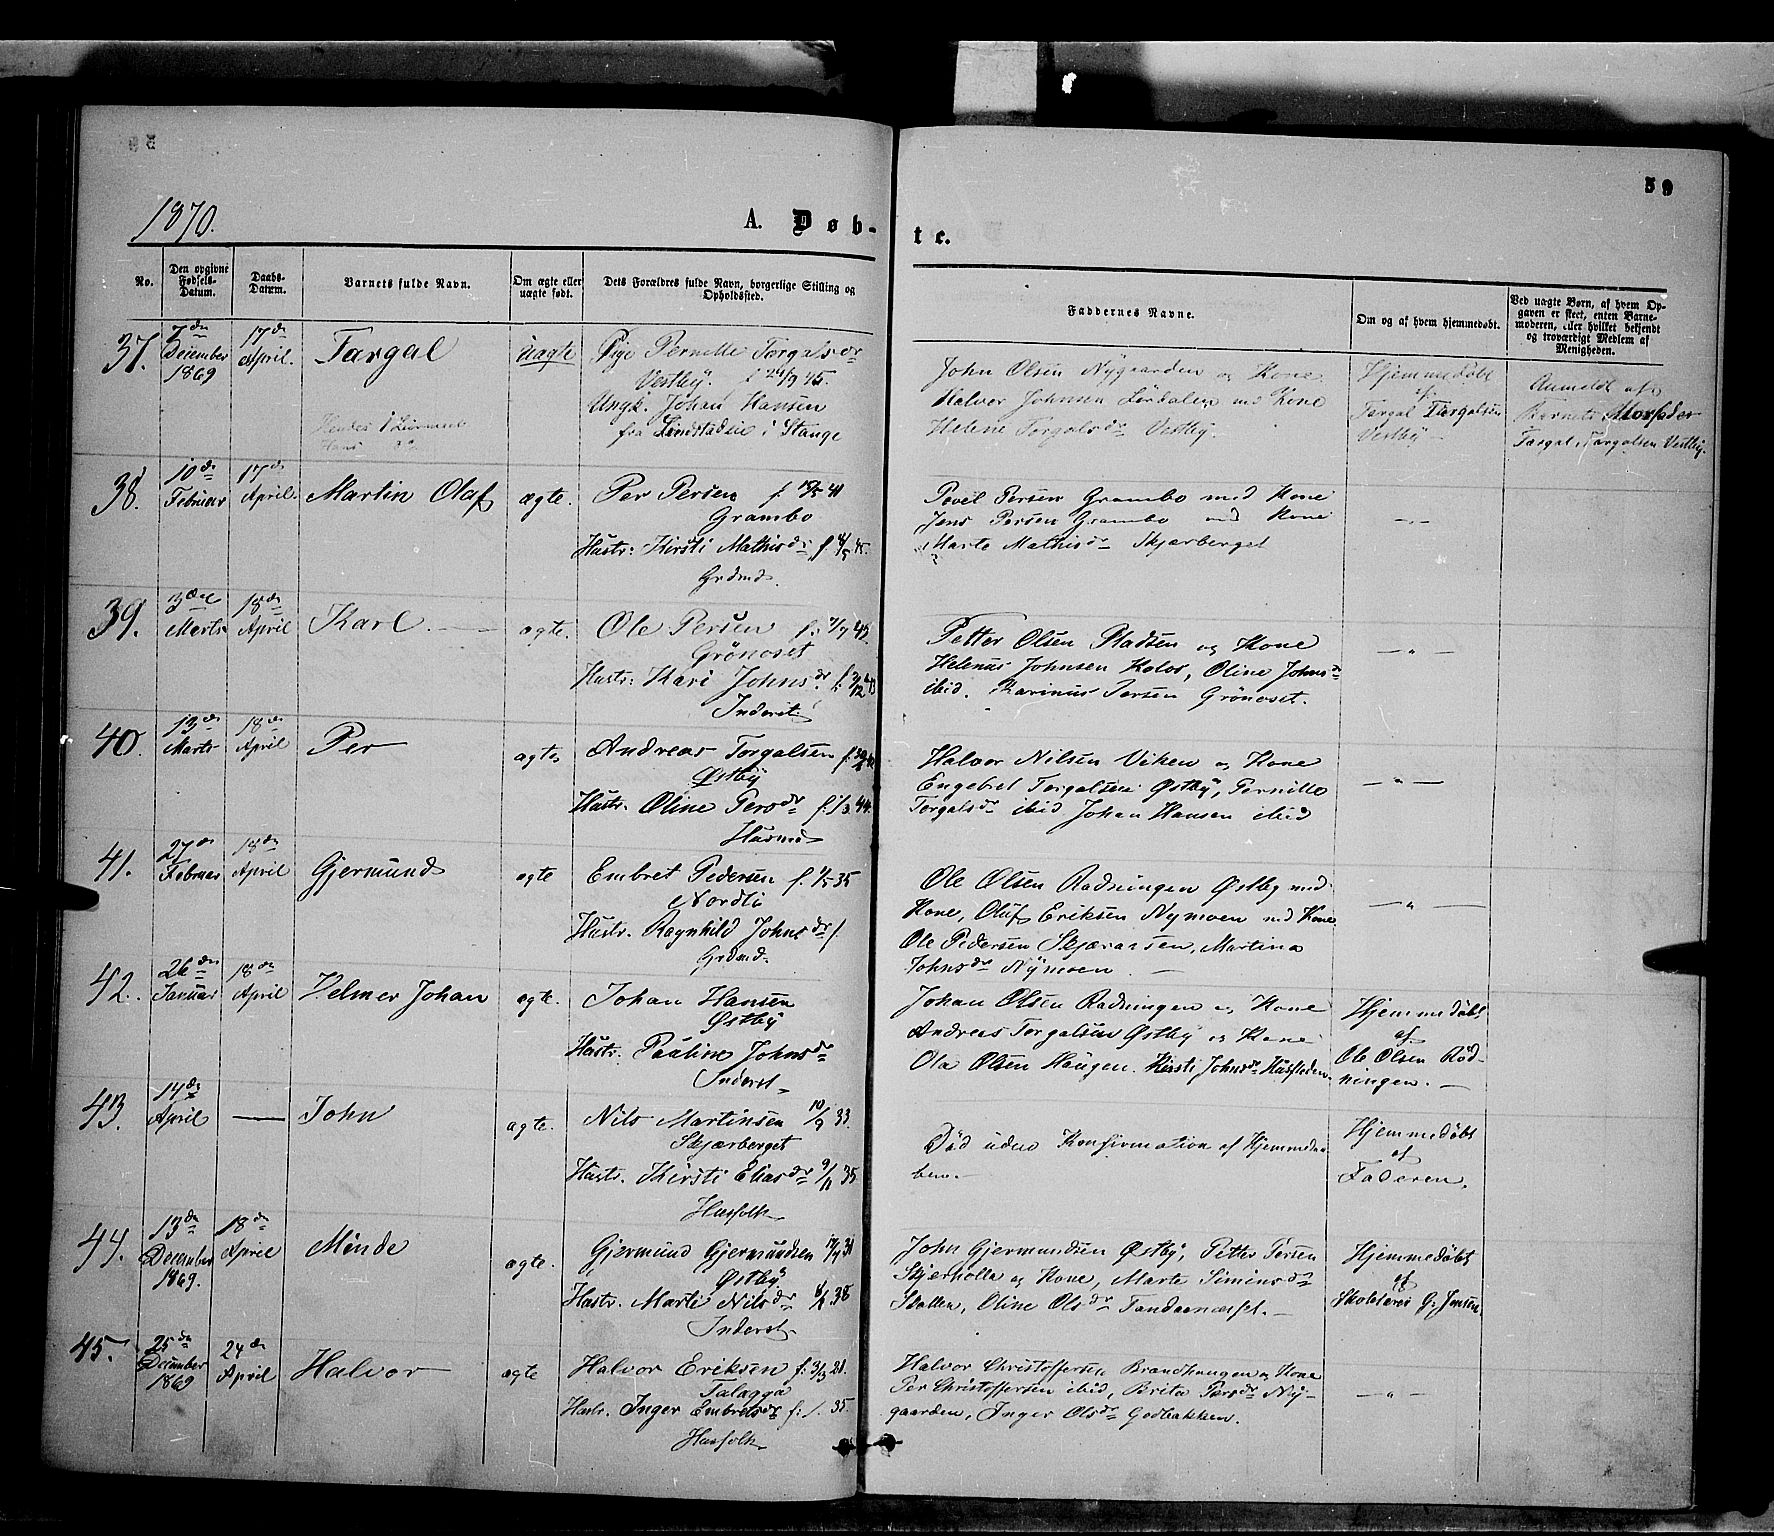 59
1870.
A. Døb-
te.
No.
Den opgivne Fødsels-Datum.
Daabs-Datum.
Barnets fulde Navn.
Om ægte eller uægte født.
Dets Forældres fulde Navn, borgerlige Stilling og Opholdssted.
Faddernes Navne.
Om og af hvem hjemmedøbt.
Ved uægte Børn, af hvem Opgaven er skeet, enten Barnemoderen, eller hvilket bekjendt og troværdigt Medlem af Menigheden.
37.
7de December 1869
17de April
Targal
uægte
Pige Pernille Torgalsdr
Vestby. f 24/9 45.
Ungk. Johan Hansen
fra Lindstadeie i Stange
John Olsen Nygaarden og Kone.
Halvor Johnsen Lørdalen med Kone
Helene Torgalsdr Vestby.
Hjemmedøbt
af
Targal Targalsen
Vestby
Anmeldt af
Barnets Morfader
Targal Targalsen Vestby.
38.
10de Februar
17de April
Martin Olaf
ægte.
Per Persen f. 41
Grambo
Hustr: Kirsti Mathisdr f. 45.
Grdmd.
Povel Persen Grambo med Kone
Jens Persen Grambo med Kone
Marte Mathisdr Skjærberget
39.
3die Marts
18de April
Karl.
ægte.
Ole Persen f. 42
Grönoset
Hustr: Kari Johnsdr. f.
Inderst
Petter Olsen Pladsen og Kone
Helenus Johnsen Kolos, Oline Johnsdr
ibid. Karinus Persen Grönoset.
40.
13de Marts
18de April
Per
ægte
Andreas Torgalsen
Østby
Hustr. Oline Persdr f. 1/3 44.
Husmd
Halvor Nilsen Viken og Kone
Engebret Torgalsen Østby, Pernille
Torgalsdr ibid Johan Hansen ibid
41.
27de Februar
18de April
Gjermund
ægte
Embret Pedersen f. 1/5 35
Nordli
Hustr. Ragnhild Johnsdr f.
Grdmd.
Ole Olsen Radningen Østby med
Kone, Oluf Eriksen Nymoen med Kone
Ole Pedersen Skjæraasen, Martina
Johnsdr Nymoen.
42.
26de Januar
18de April
Helmer Johan
ægte.
Johan Hansen
Østby
Hustr. Pauline Johnsdr
Inderst
Johan Olsen Radningen og Kone
Andreas Torgalsen Østby og Kone
Ola Olsen Haugen. Kirsti Johnsdr Husfladen.
Hjemmedøbt
af
Ole Olsen Rød-
ningen.
43.
14de April
John
ægte.
Nils Martinsen 10/9 33.
Skjærberget
Hustr. Kirsti Eliasdr 9/11 35
Husfolk
Død uden Konfirmation af Hjemmedaa-
ben.
Hjemmedøbt
af
Faderen.
44.
13de December 1869.
18de April
Mènde
ægte.
Gjermund Gjermundsen 31
Østby
Hustr. Marte Nilsdr 38
Inderst.
John Gjermundsen Østby, Petter Persen
Skjerholla og Kone, Marte Simensdr
Skallen, Oline Olsdr Tandaanæset.
Hjemmedøbt
af
Skolelærer G. Jensen
45.
25de December 1869
24de April
Halvor
ægte
Halvor Eriksen f: 3/3 21.
Talagga
Hustr. Inger Embretsdr f: 35.
Husfolk
Halvor Christoffersen Brandhaugen og Kone
Per Christoffersen ibid, Brita Persdr Ny-
gaarden, Inger Olsdr Godbakken.